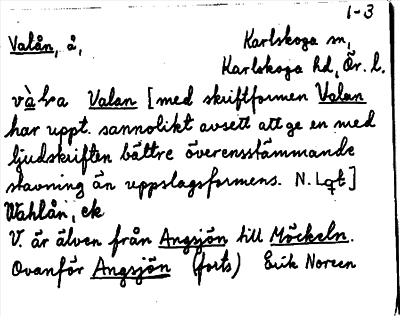 1-3
Valån, å, Karlskoga sn,
Karlskoga hd, Ör. l.
Valan [med skriftformen Valan
har uppt. sannolikt avsett att ge en med
ljudskriften bättre överensstämmande
stavning än uppslagsformens. N. Lgt]
Wahlån, ek
V. är älven från Angsjön till Möckeln.
Ovanför Angsjön (forts) Erik Noreen